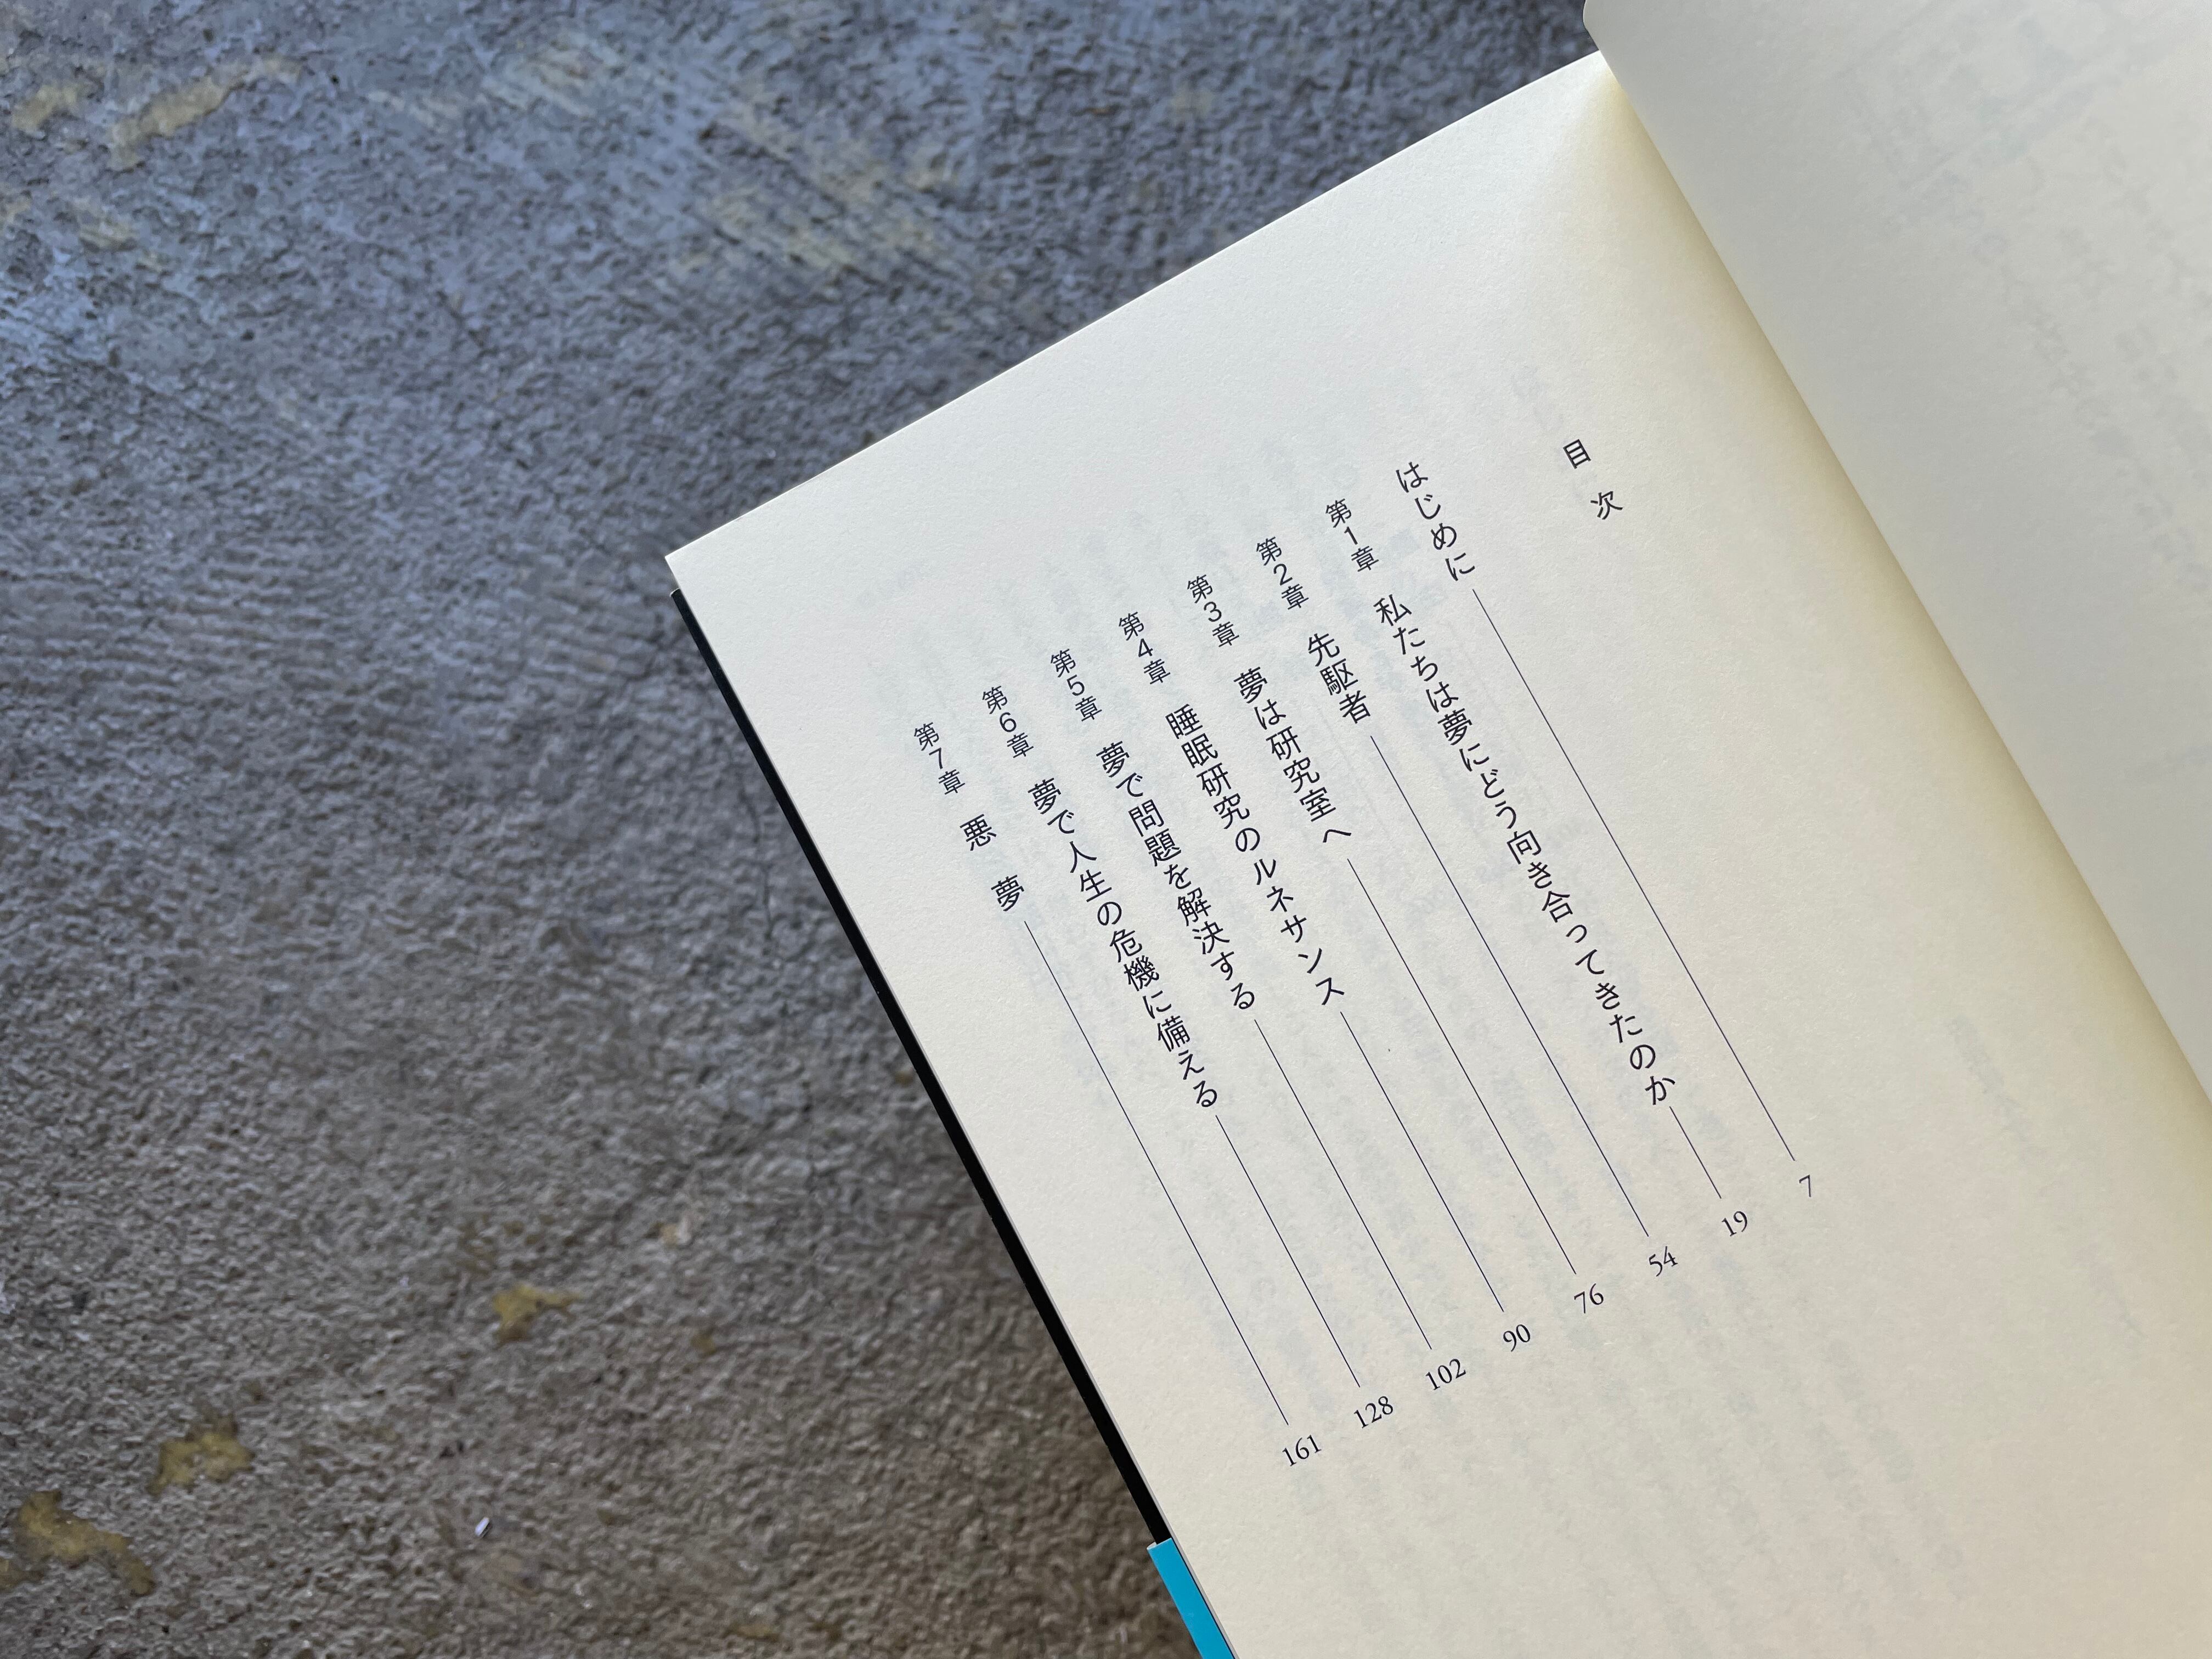 目次
はじめに 7
第1章 私たちは夢にどう向き合ってきたのか 19
第2章 先駆者 54
第3章 夢は研究室へ 76
第4章 睡眠研究のルネサンス 90
第5章 夢で問題を解決する 102
第6章 夢で人生の危機に備える 128
第7章 悪夢 161